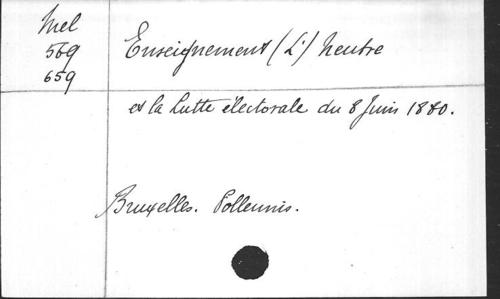 Mel
569
659
Enseignement (L') neutre
et la lutte électorale du 8 Juin 1880.
Bruxelles. Polleunis.